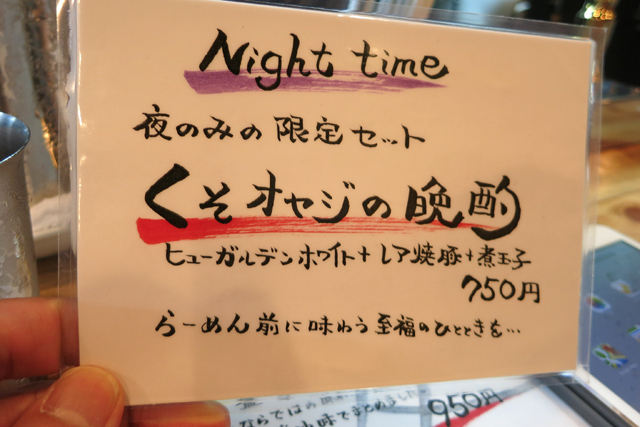 Night time
夜のみの限定セット
くそオヤジの晩酌
ヒューガルデンホワイト+レア焼豚+煮玉子
750円
らーめん前に味わう至福のひとときを…
950円
ならではの
味でまとめました